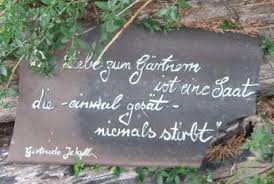 Die Liebe zum Gärtnern
ist eine Saat
die - einmal gesät -
niemals stirbt"
Gertrude Jekyll